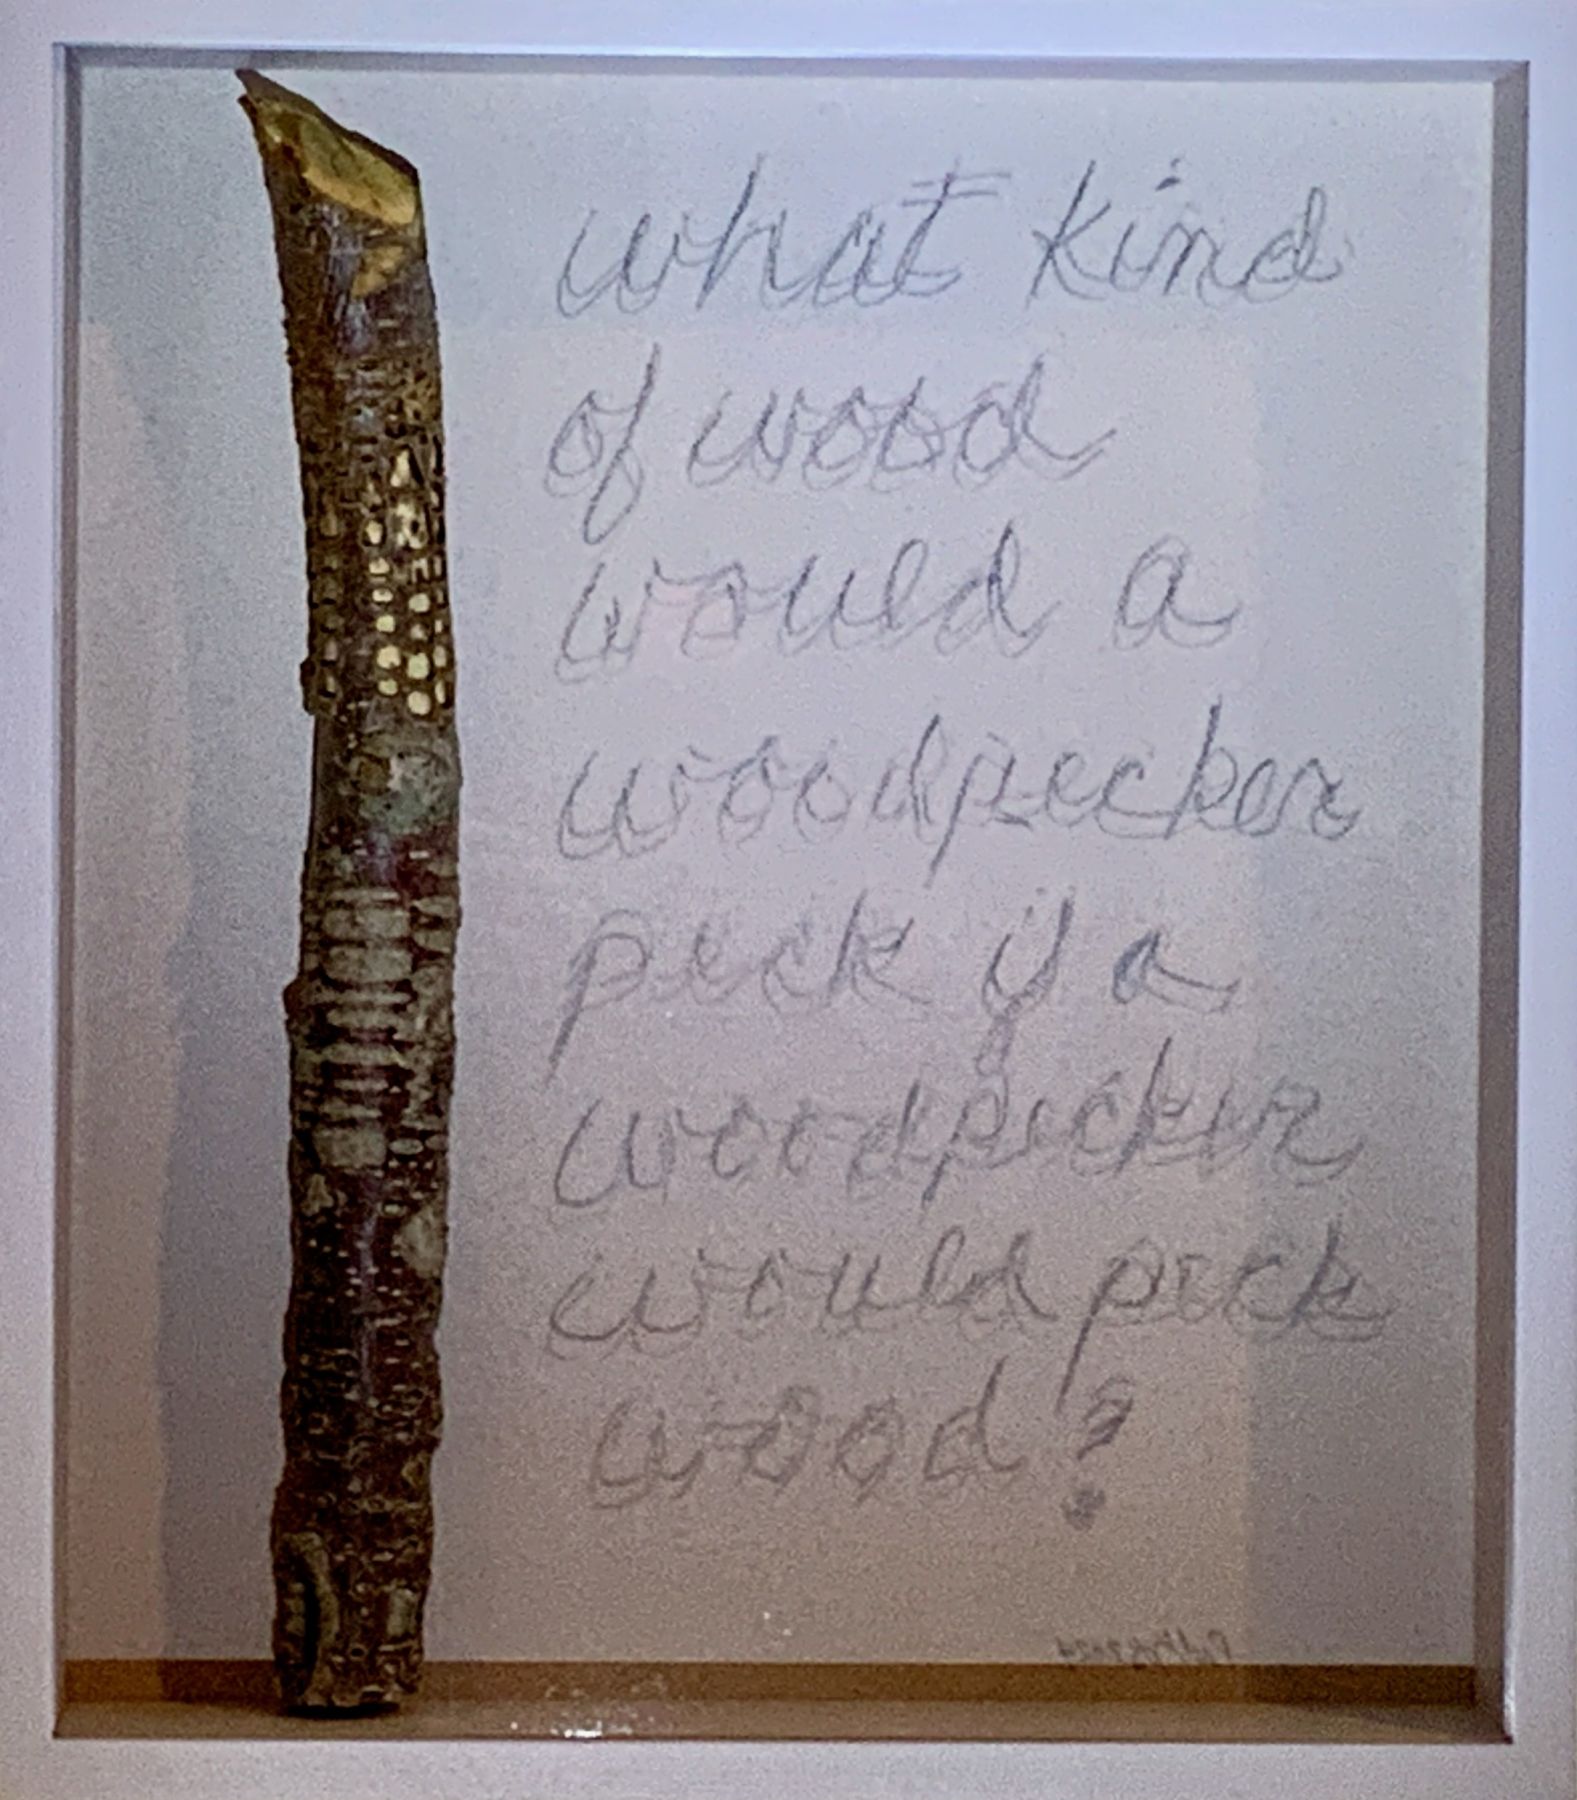 what kind
of wood
would a
woodpecker
peck if a
woodpecker
would peck
wood?